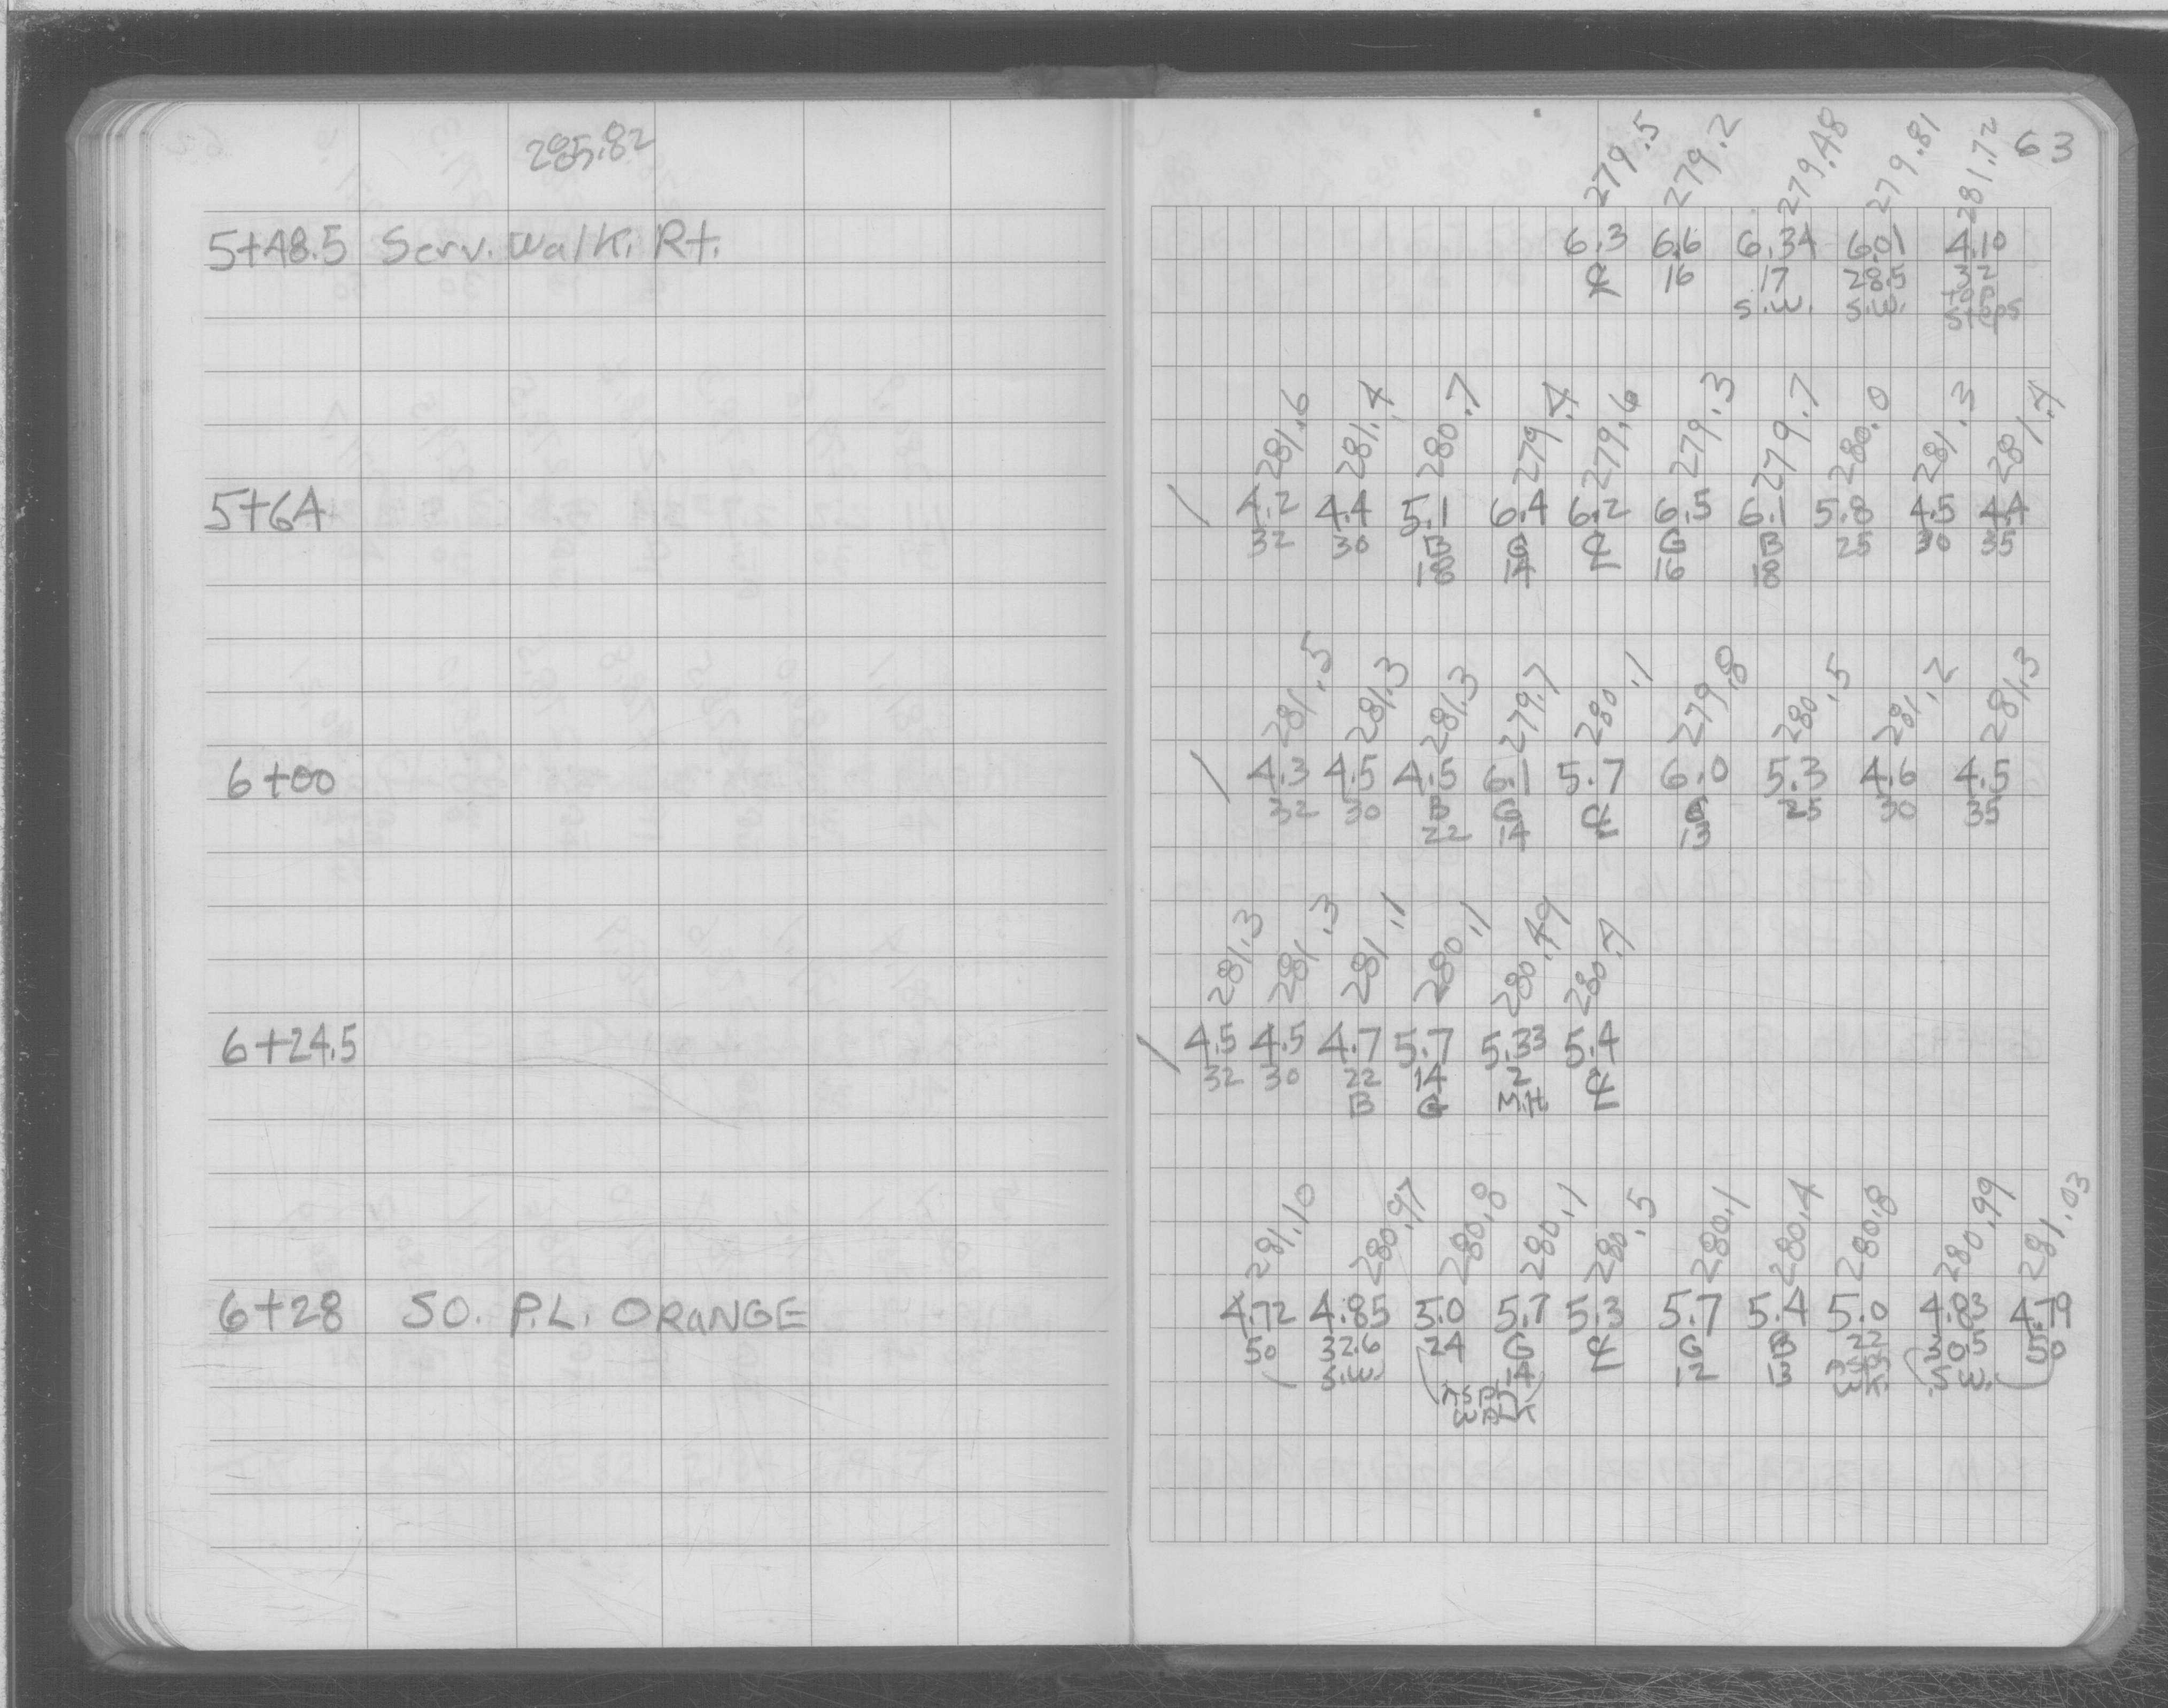 285.82
63
279.5 279.2 279.48 279.81 281.72
5+48.5 Serv. Walk. Rt. 6.3 6.6 6.34 6.01 4.10
℄ 16 17 28.5 32
S.W. S.W. top
Steps
281.6 281.4 280.7 279.4 279.6 279.3 279.7 280.0 281.3 281.4
5+64 / 4.2 4.4 5.1 6.4 6.2 6.5 6.1 5.8 4.5 4.4
32 30 B G ℄ G B 25 30 35
18 14 16 18
281.5 281.3 281.3 279.7 280.1 279.8 280.5 281.2 281.3
6+00 / 4.3 4.5 4.5 6.1 5.7 6.0 5.3 4.6 4.5
32 30 B G ℄ G 25 30 35
22 14 13
281.3 281.3 281.1 280.1 280.49 280.4
6+24.5 / 4.5 4.5 4.7 5.7 5.33 5.4
32 30 22 14 2 ℄
B G M.H
281.10 280.97 280.8 280.1 280.5 280.1 280.4 280.8 280.99 281.03
6+28 SO. P.L. ORANGE 4.72 4.85 5.0 5.7 5.3 5.7 5.4 5.0 4.83 4.79
50 32.6 24 G ℄ G B 22 30.5 50
S.W. 14 12 13 ASP. S.W.
ASP. WK.
WALK